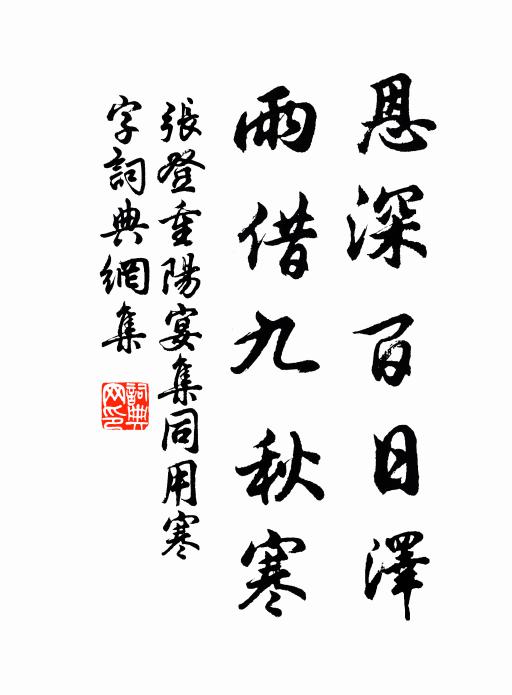 恩深百日澤
雨借九秋寒
張登重陽宴集同用寒
字詞典網集
詞典網印